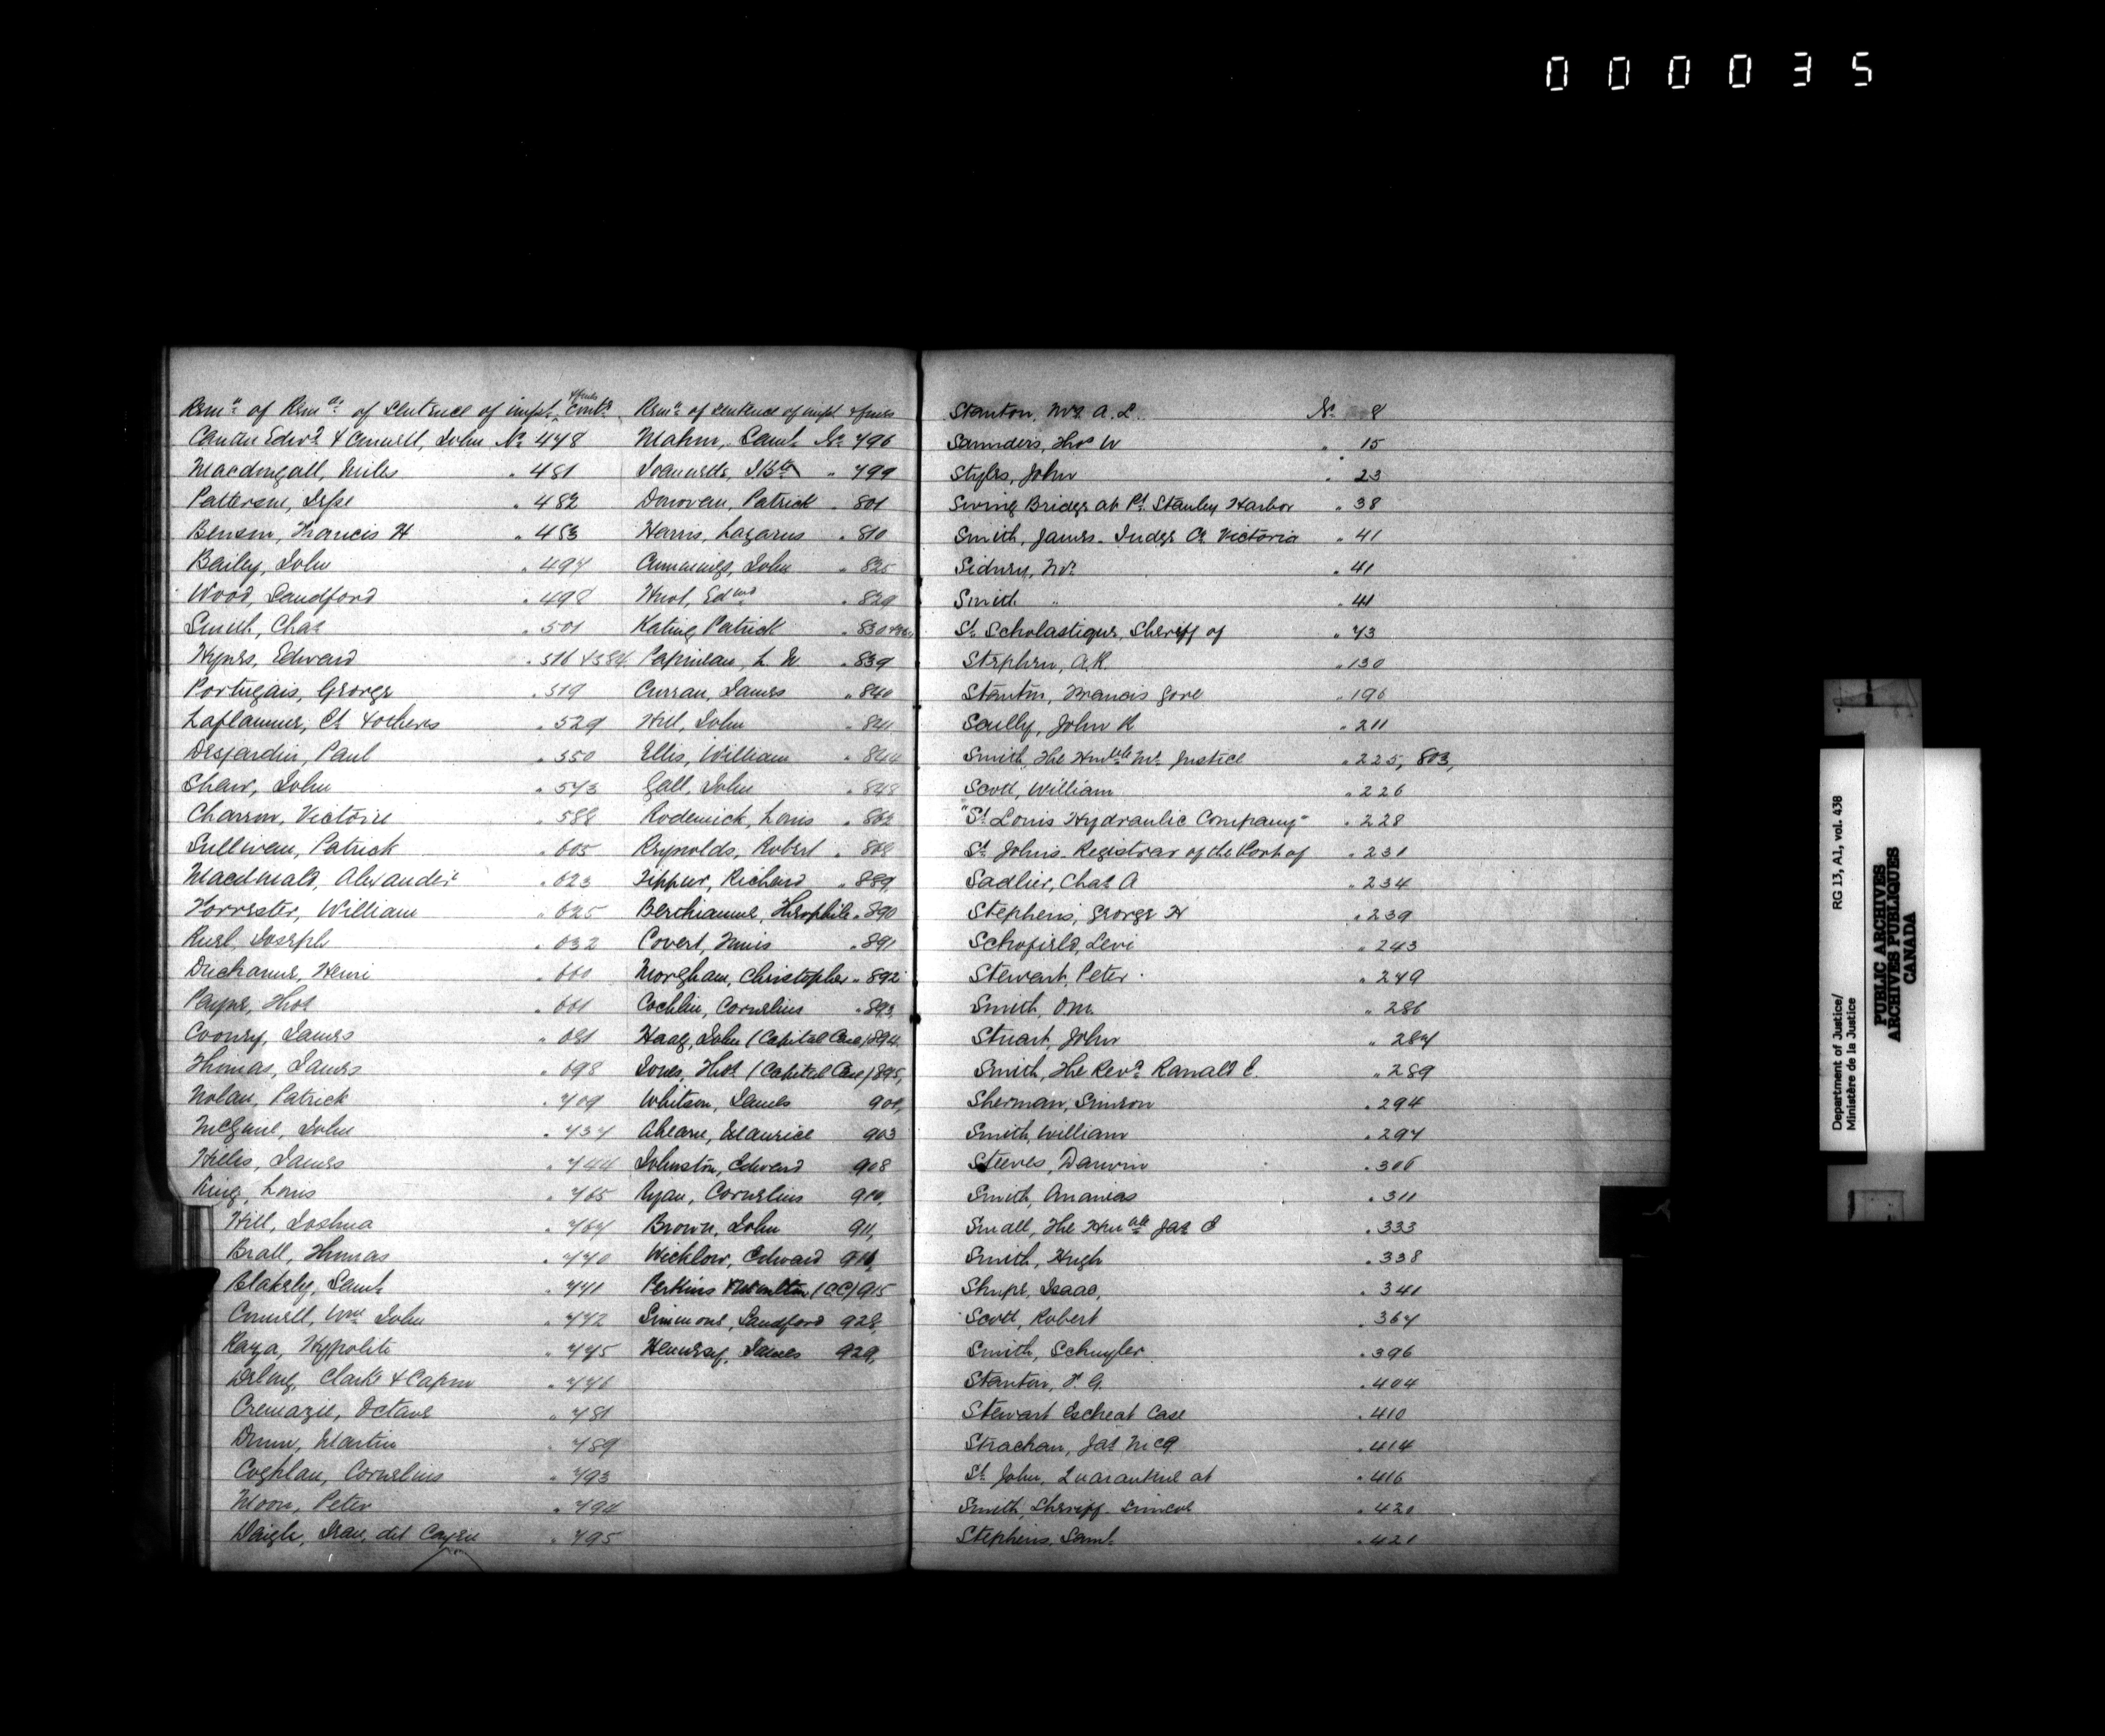 000035
Remn of Remn of sentence of impt & fines Contd
Candu Edwd & Cornell, John No 478
Macdougall, Miles " 481
Patterson, Jesse " 482
Benson, Francis H " 483
Bailey, John " 497
Wood, Sandford " 498
Smith, Chas " 501
Hynes, Edward " 516 & 584
Portugais, George " 519
Laflamme, Ct & others " 529
Desjardin, Paul " 550
Shaw, John " 573
Charron, Victoire " 588
Sullivan, Patrick " 605
Macdonald, Alexander " 623
Forrester, William " 625
Ruel, Joseph " 632
Ducharme, Henri " 660
Payne, Thos " 661
Cooney, James " 681
Thomas, James " 698
Nolan, Patrick " 709
McGuire, John " 737
Hilles, James " 744
King, Louis " 765
Hill, Joshua " 767
Brall, Thomas " 770
Blakely, Saml " 771
Connell, Wm John " 772
Raza, Hyppolite " 775
Clark & Capron " 776
Cremazie, Octave " 781
Dunn, Martin " 789
Coghlan, Cornelius " 793
Moon, Peter " 794
Daigle, Jean, dit Cayen " 795
Remn of sentence of impt & fines
Mahon, Saml No 796
Joannette, J. Bte " 799
Donovan, Patrick " 801
Harris, Lazarus " 810
Cummings, John " 825
Hurot, Edwd " 829
Kating, Patrick " 830
Papineau, L. N " 839
Curran, James " 840
Hill, John " 841
Ellis, William " 844
Gall, John " 848
Roderick, Louis " 862
Reynolds, Robert " 868
Tippur, Richard " 889
Berthiaume, Theophile " 890
Covert, Ennis " 891
Morgham, Christopher " 892
Cochlin, Cornelius " 893
Haag, John (Capital Case) 894
Jones, Thos (Capital Case) 895
Whitson, James 901
Ahearn, Maurice 903
Johnston, Edward 908
Ryan, Cornelius 910
Brown, John 911
Wicklow, Edward 916
Perkins & Walton (CC) 915
Simmons, Sandford 928
Hennesy, James 929
Stanton, Mr A. L. No 8
Saunders, Thos W " 15
Styles, John " 23
Swing Bridge at Pt Stanley Harbor " 38
Smith, James. Judge Co Victoria " 41
Sidney, Mr " 41
Smith " " 41
St Scholastique, Sheriff of " 73
Stephen, A.R. " 130
Stanton, Francis Gore " 196
Scully, John R " 211
Smith, The Honble Mr Justice " 225, 803,
Scott, William " 226
"St Louis Hydraulic Company" " 228
St Johns. Registrar of the Port of " 231
Sadlier, Chas A " 234
Stephens, George H " 239
Schofield, Levi " 243
Stewart, Peter " 249
Smith, O.M. " 286
Stuart, John " 287
Smith, The Revd Ranald C. " 289
Sherman, Simson " 294
Smith, William " 297
Steeves, Darwin " 306
Smith, Ananias " 311
Small, The Honble Jas E " 333
Smith, Hugh " 338
Shupe, Isaac, " 341
Scott, Robert " 367
Smith, Schuyler " 396
Stanton, F. G. " 404
Stewart Escheat Case " 410
Strachan, Jas McG " 414
St John, Quarantine at " 416
Smith, Sheriff. Simcoe " 420
Stephens, Saml. " 421
Department of Justice/
Ministère de la Justice
RG 13, A1, vol. 438
PUBLIC ARCHIVES
ARCHIVES PUBLIQUES
CANADA